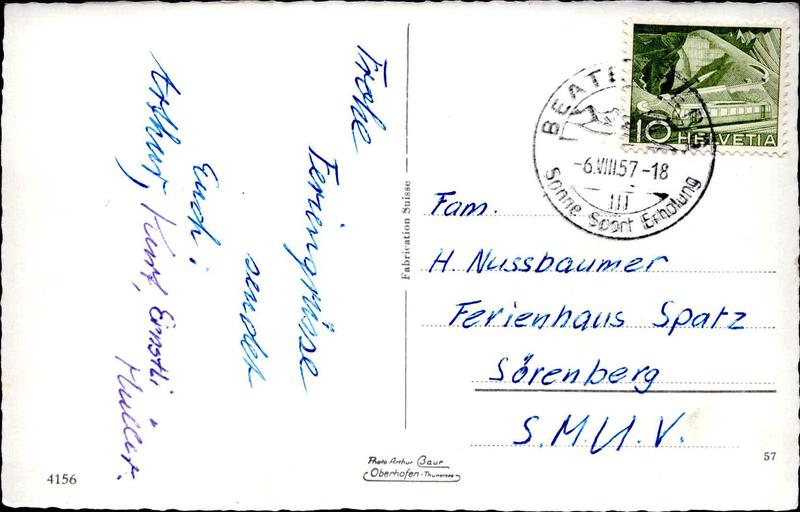 Frohe
Feriengrüsse
sendet
Euch:
Arthur, Kurt, Ernstli
Müller.
Fabrication Suisse
BEATENBERG
-6.VIII.57-18
III
Sonne Sport Erholung
10 HELVETIA
Fam.
H Nussbaumer
Ferienhaus Spatz
Sörenberg
S.M.U.V.
4156
Photo Arthur Baur
Oberhofen-Thunersee
57